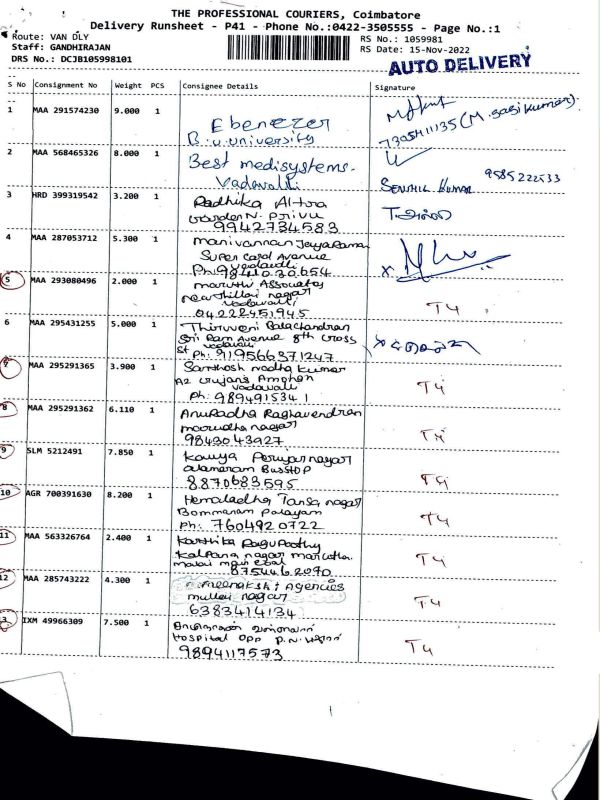 THE PROFESSIONAL COURIERS, Coimbatore
Delivery Runsheet - P41 - Phone No.:0422-3505555 - Page No.:1
Route: VAN DLY
RS No.: 1059981
Staff: GANDHIRAJAN
RS Date: 15-Nov-2022
DRS No.: DCJB105998101
AUTO DELIVERY
S No Consignment No Weight PCS Consignee Details Signature
1 MAA 291574230 9.000 1
Ebenezer
B.U.university
7305411135 (M. Sasikumar)
2 MAA 568465326 8.000 1
Best medisystems.
Vadavalli
Senthil Kumar 9585222533
3 HRD 399319542 3.200 1 Radhika Altra
Garden N. Privu
9942734583
4 MAA 287053712 5.300 1 manivannan JeyaRaman
Super Card Avenue
vadavalli
Ph: 9841030654
5 MAA 293080496 2.000 1 maruthi Associates
near thillai nagar
vadavalli
04222451945
T4
6 MAA 295431255 5.000 1 Thiruveni Balachandran
Sri Ram Avenue 8th cross
St vadavalli
Ph: 919566371247
7 MAA 295291365 3.900 1 Santhosh nadha Kumar
A2 Amghan
vadavalli
Ph: 9894915341
T4
8 MAA 295291362 6.110 1 Anuradha Raghavendran
marudha nagar
9843043927
T4
9 SLM 5212491 7.850 1 Kavya Periyar nagar
alamaram Bus stop
8870683595
T4
10 AGR 700391630 8.200 1 Hemaladha Tansa nagar
Bommanam palayam
Ph: 7604920722
T4
11 MAA 563326764 2.400 1 Karthika Ragupathy
Kalpana nagar marutha
malai main
8754462070
T4
12 MAA 285743222 4.300 1 meenakshi Agencies
mullai nagar
6383414134
T4
13 IXM 49966309 7.500 1
Hospital opp P.N.
9894117573
T4